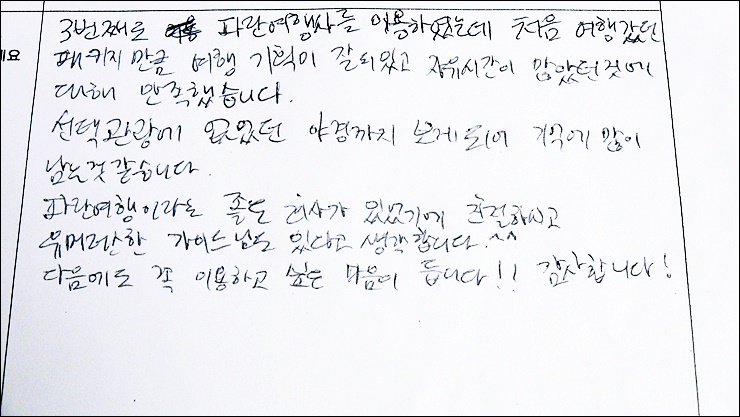 3번째로 파란여행사를 이용하였는데 처음 여행갔던
패키지 만큼 여행 기획이 잘되있고 자유시간이 많았던것에
대해 만족했습니다.
선택관광에 없었던 야경까지 보게되어 기억에 많이
남는것 같습니다.
파란여행이라는 좋은 회사가 있었기에 친절하시고
유머러스한 가이드님도 있다고 생각합니다.^^
다음에도 꼭 이용하고 싶은 마음이 듭니다!! 감사합니다!
세요